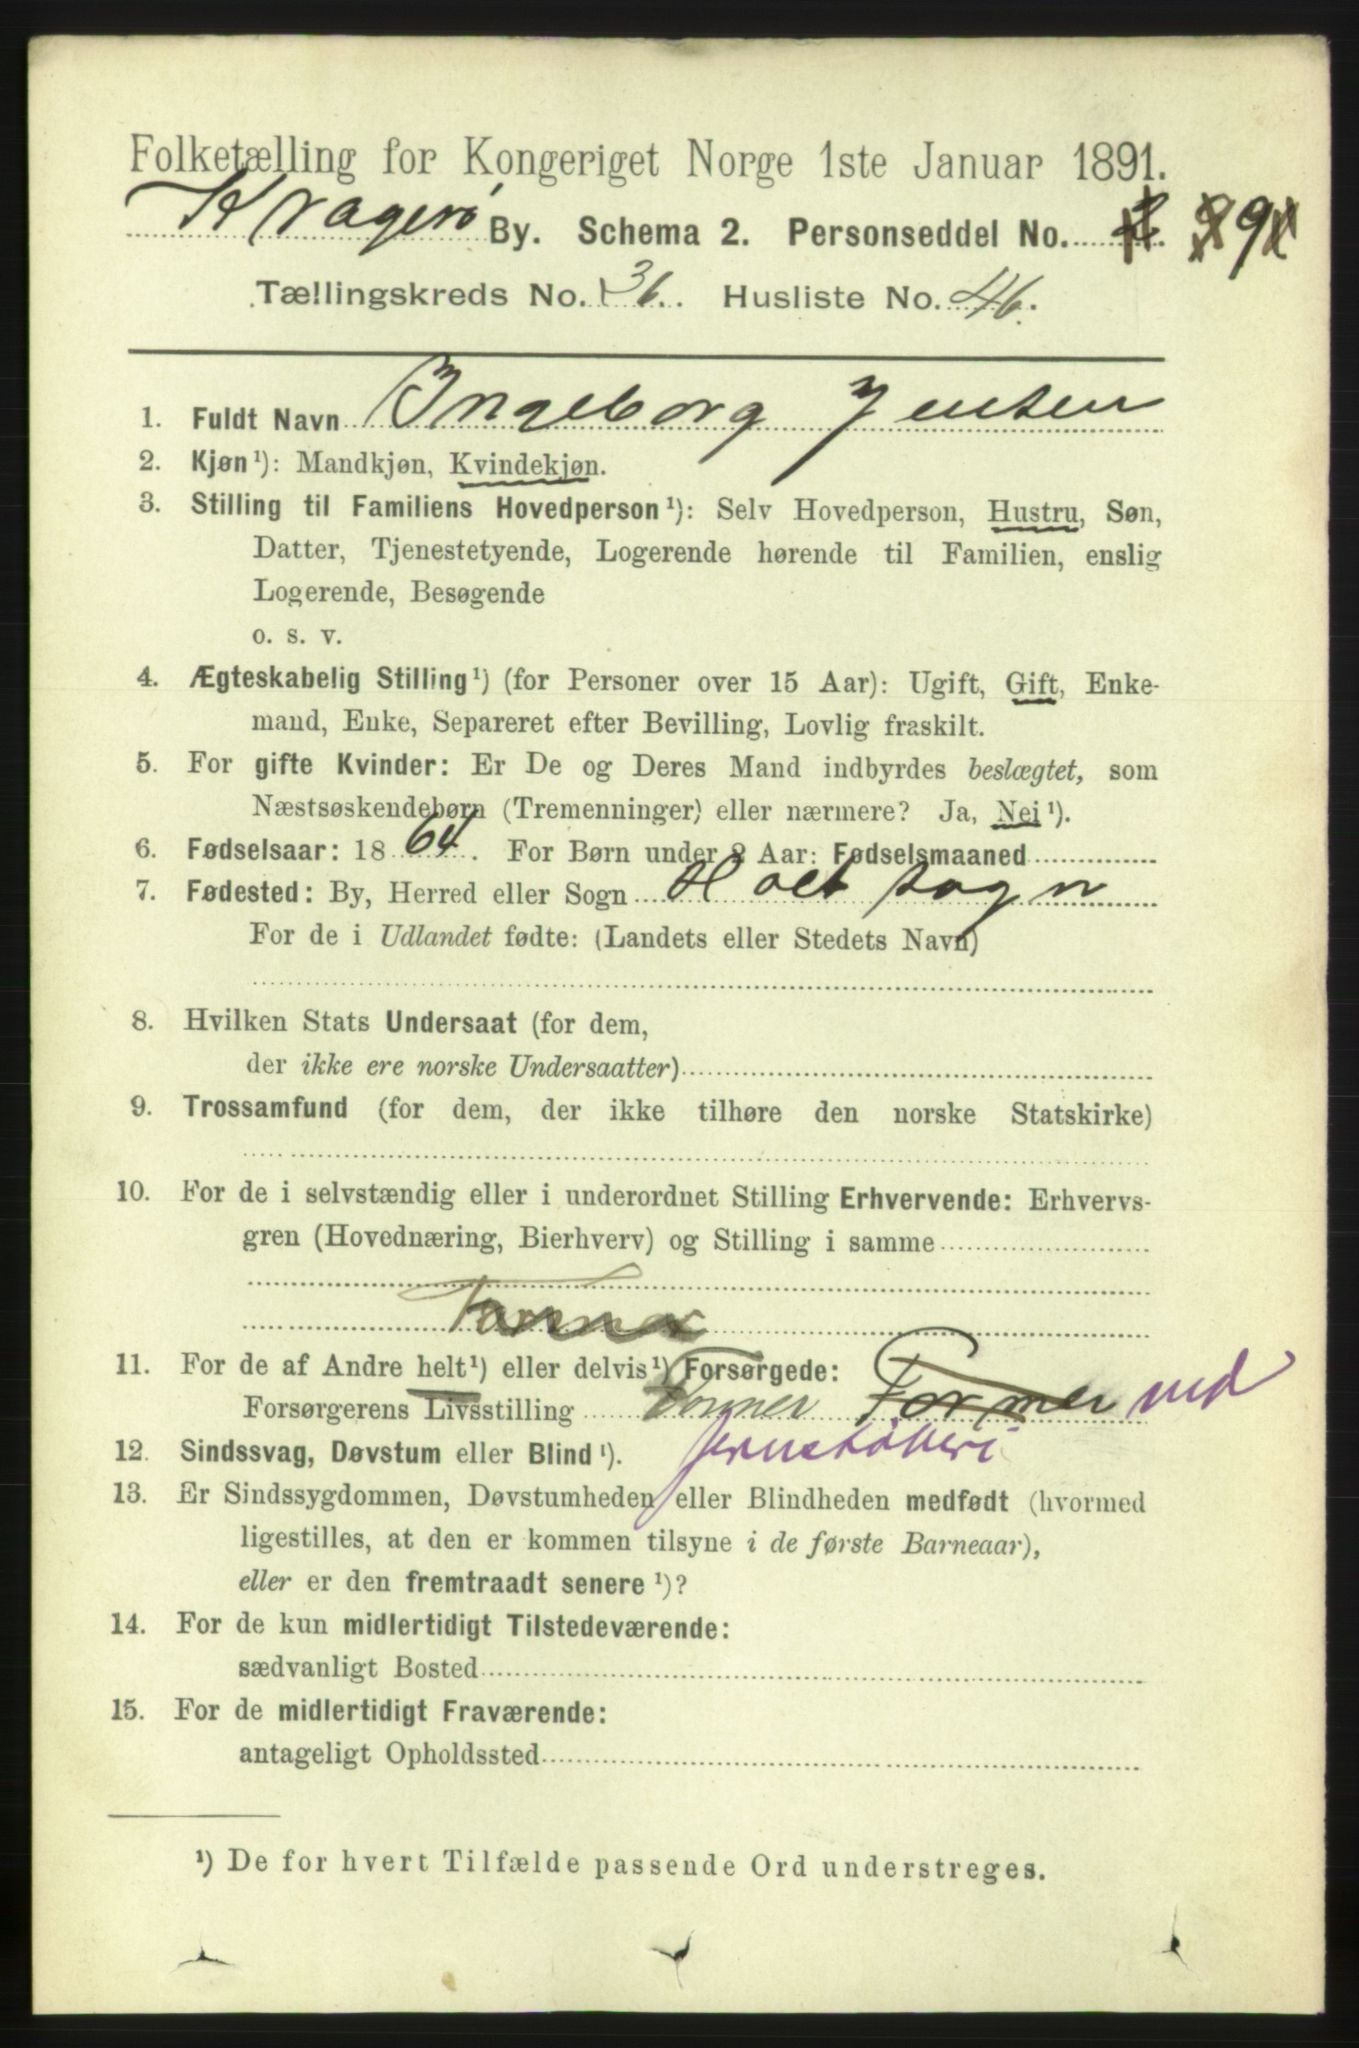 Folketælling for Kongeriget Norge 1ste Januar 1891.
Kragerø By. Schema 2. Personseddel No. 9
Tællingskreds No. 36. Husliste No. 46.
1. Fuldt Navn Ingeborg Jensen
2. Kjøn¹): Mandkjøn, Kvindekjøn.
3. Stilling til Familiens Hovedperson¹): Selv Hovedperson, Hustru, Søn,
Datter, Tjenestetyende, Logerende hørende til Familien, enslig
Logerende, Besøgende
o. s. v.
4. Ægteskabelig Stilling¹) (for Personer over 15 Aar): Ugift, Gift, Enke-
mand, Enke, Separeret efter Bevilling, Lovlig fraskilt.
5. For gifte Kvinder: Er De og Deres Mand indbyrdes beslægtet, som
Næstsøskendebørn (Tremenninger) eller nærmere? Ja, Nei¹).
6. Fødselsaar: 1864. For Børn under 2 Aar: Fødselsmaaned
7. Fødested: By, Herred eller Sogn Holt sogn
For de i Udlandet fødte: (Landets eller Stedets Navn)
8. Hvilken Stats Undersaat (for dem,
der ikke ere norske Undersaatter)
9. Trossamfund (for dem, der ikke tilhøre den norske Statskirke)
10. For de i selvstændig eller i underordnet Stilling Erhvervende: Erhvervs-
gren (Hovednæring, Bierhverv) og Stilling i samme
11. For de af Andre helt¹) eller delvis¹) Forsørgede:
Forsørgerens Livsstilling Former Former ved
jernstøberi
12. Sindssvag, Døvstum eller Blind¹).
13. Er Sindssygdommen, Døvstumheden eller Blindheden medfødt (hvormed
ligestilles, at den er kommen tilsyne i de første Barneaar),
eller er den fremtraadt senere¹)?
14. For de kun midlertidigt Tilstedeværende:
sædvanligt Bosted
15. For de midlertidigt Fraværende:
antageligt Opholdssted
¹) De for hvert Tilfælde passende Ord understreges.